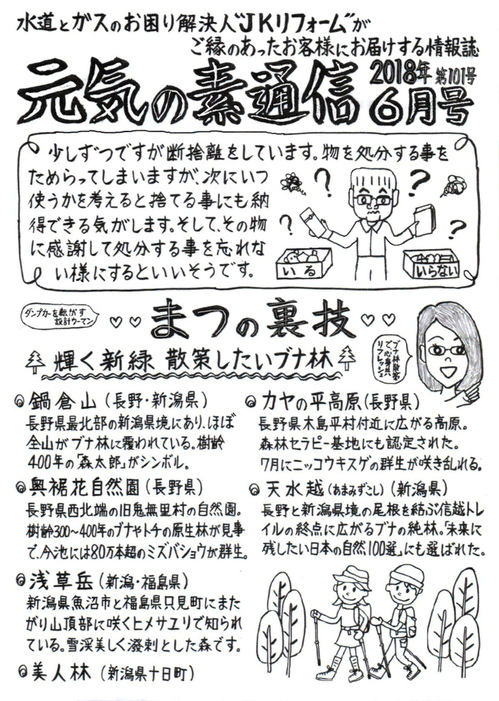 水道とガスのお困り解決人"JKリフォーム"が
ご縁のあったお客様にお届けする情報誌
元気の素通信 2018年 第101号 6月号
少しずつですが断捨離をしています。物を処分する事を
ためらってしまいますが、次にいつ
使うかを考えると捨てる事にも納
得できる気がします。そして、その物
に感謝して処分する事を忘れな
い様にするといいそうです。
? ? ? ?
いる いらない
ダンプカーを転がす
設計ウーマン
♡♡ まつの裏技 ♡♡
輝く新緑 散策したいブナ林
ブナ林散策で
心身共
リフレッシュ!
鍋倉山(長野・新潟県)
長野県最北部の新潟県境にあり、ほぼ
全山がブナ林に覆われている。樹齢
400年の「森太郎」がシンボル。
奥裾花自然園(長野県)
長野県西北端の旧鬼無里村の自然園。
樹齢300~400年のブナやトチの原生林が見事
で、今池には80万本超のミズバショウが群生。
浅草岳(新潟・福島県)
新潟県魚沼市と福島県只見町にまた
がり山頂部に咲くヒメサユリで知られ
ている。雪渓美しく溌剌とした森です。
美人林(新潟県十日町)
カヤの平高原(長野県)
長野県木島平村付近に広がる高原。
森林セラピー基地にも認定された。
7月にニッコウキスゲの群生が咲き乱れる。
天水越(あまみずこし)(新潟県)
長野と新潟県境の尾根を結ぶ信越トレ
イルの終点に広がるブナの純林。「未来に
残したい日本の自然100選」にも選ばれた。